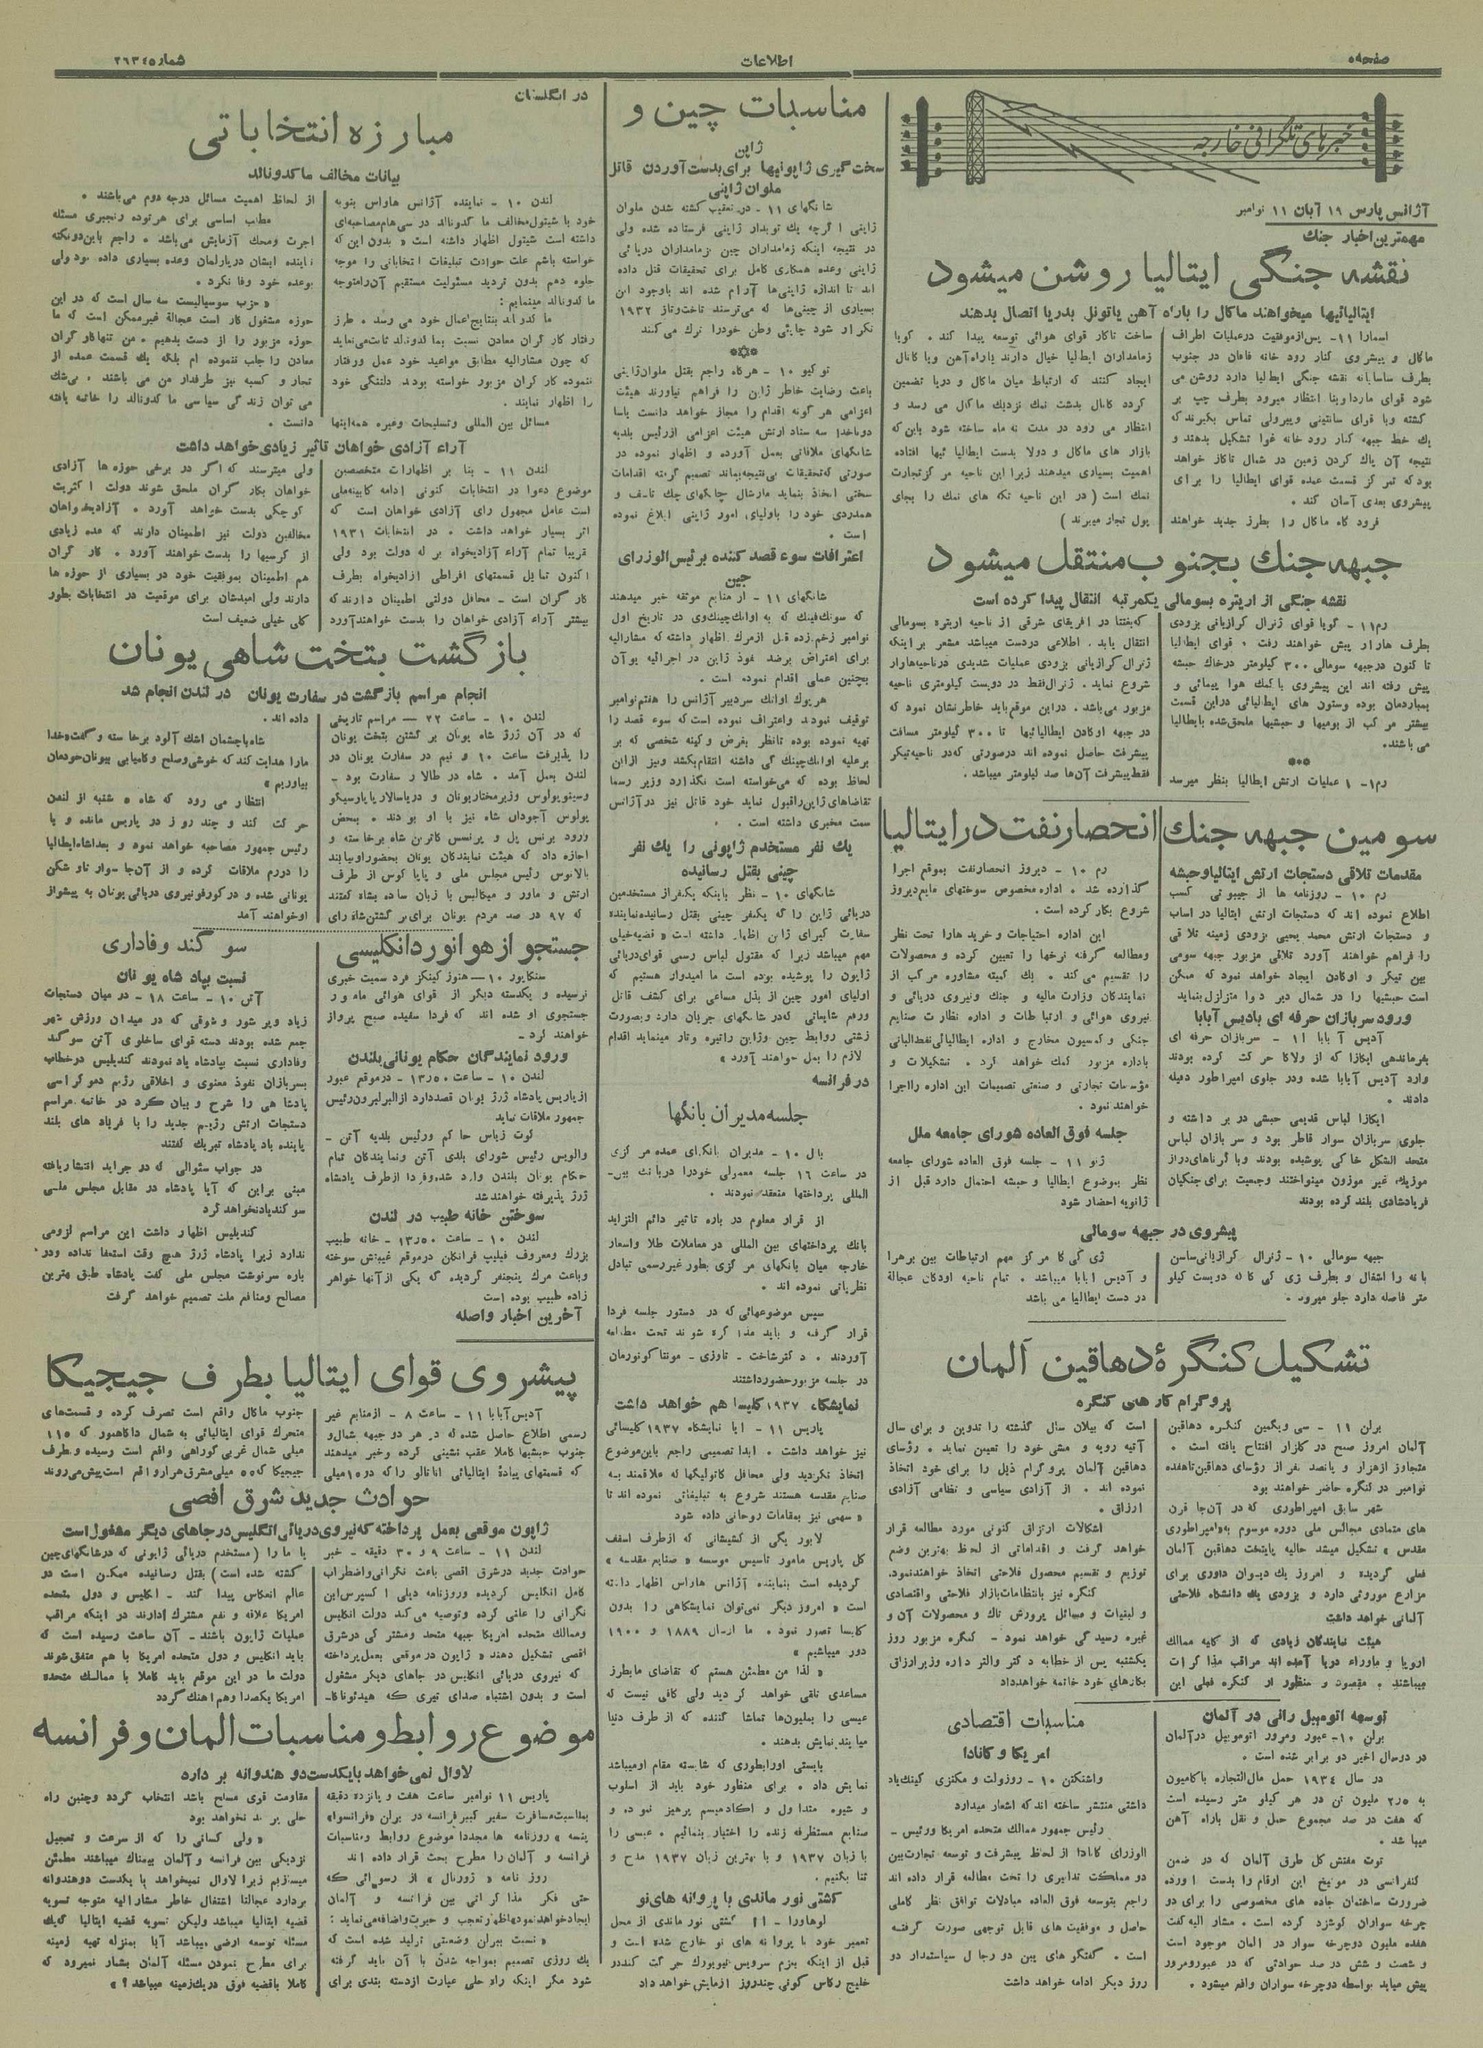 صفحه۵
اطلاعات
شماره ۲۶۳۴۵
خبرهای تلگرافی خارجه
آژانس پارس ۱۹ آبان ۱۱ نوامبر
مهمترین اخبار جنك
نقشه جنگی ایتالیا روشن میشود
ایتالیائیها میخواهند ماکال را باراه آهن یاتونل بدریا اتصال بدهند
اسمارا ۱۱- پس از موفقیت درعملیات اطراف
ماکال و پیشروی کنار رود خانه فافان در جنوب
بطرف ساسابانه نقشه جنگی ایطالیا دارد روشن می
یك خط جبهه کنار رود خانه غوا تشکیل بدهند و
نتیجه آن پاك کردن زمین در شمال تاکاز خواهد
بود که تمر کز قسمت عمده قوای ایطالیا را برای
پیشروی بعدی آسان کند .
فرود گاه ماکال را بطرز جدید خواهند
ساخت تاکار قوای هوائی توسعه پیدا کند . گویا
زمامداران ایطالیا خیال دارند یاراه آهن ویا کانال
ایجاد کنند که ارتباط میان ماکال و دریا تضمین
گردد کانال بدشت نمك نزدیك ماکال می رسد و
انتظار می رود در مدت نه ماه ساخته شود باین که
بازار های ماکال و دولا بدست ایطالیا ئیها افتاده
اهمیت بسیاری میدهند زیرا این ناحیه مر کزتجارت
نمك است ( در این ناحیه تکه های نمك را بجای
پول بکار میبرند )
جبهه جنك بجنوب منتقل میشود
نقشه جنگی از اریتره بسومالی یکمرتبه انتقال پیدا کرده است
رم۱۱ - گویا قوای ژنرال گرازیانی بزودی
بطرف هارار پیش خواهند رفت . قوای ایطالیا
تا کنون درجبهه سومالی ۳۰۰ کیلومتر درخاك حبشه
پیش رفته اند این پیشروی با کمك هوا پیمائی و
بمباردمان بوده وستون های ایطالیائی دراین قسمت
بیشتر مر کب از بومیها و حبشیها ملحق شده بایطالیا
می باشند.
***
رم۱- ۱ عملیات ارتش ایطالیا بنظر میرسد
که بغتتا در افریقای شرقی از ناحیه اریتره بسومالی
انتقال یابد . اطلاعی دردست میباشد مشعر براینکه
ژنرال گرازیانی بزودی عملیات شدیدی درناحیه هارار
شروع نماید . ژنرال فقط در دویست کیلومتری ناحیه
مزبور می باشد . دراین موقع باید خاطرنشان نمود که
در جبهه اوگادن ایطالیائیها تا ۳۰۰ کیلومتر مسافت
پیشرفت حاصل نموده اند درصورتی که در ناحیه تیگر
فقط پیشرفت آن ها صد کیلومتر میباشد .
سومین جبهه جنك
مقدمات تلاقی دستجات ارتش ایتالیا وحبشه
رم ۱۰ - روزنامه ها از جیبوتی کسب
اطلاع نموده اند که دستجات ارتش ایتالیا در اساب
و دستجات ارتش محمد یحیی بزودی زمینه تلاقی
را فراهم خواهند آورد تلاقی مزبور جبهه سومی
بین تیگر و اوگادن ایجاد خواهد نمود که ممکن
است حبشیها را در شمال دیر دوا متزلزل بنماید
ورود سربازان حرفه ای بادیس آبابا
آدیس آ بابا ۱۱ - سربازان حرفه ای
بفرماندهی ایکازا که از ولاکا حر کت کرده بودند
وارد آدیس آبابا شده ودر جلوی امپراطور دفیله
دادند .
ایکازا لباس قدیمی حبشی در بر داشته و
جلوی سربازان سوار قاطر بود و سر بازان لباس
متحد الشکل خاکی پوشیده بودند وبا کرناهای دراز
موزیك غیر موزون مینواختند وجمعیت برای جنگیان
فریادشادی بلند کرده بودند
انحصار نفت در ایتالیا
رم ۱۰ - دیروز انحصارنفت بموقع اجرا
گذارده شد . اداره مخصوص سوختهای مایع دیروز
شروع بکار کرده است .
این اداره احتیاجات و خرید هارا تحت نظر
ومطالعه گرفته نرخها را تعیین کرده و محصولات
را تقسیم می کند . یك کمیته مشاوره مر کب از
نمایندگان وزارت مالیه و جنك ونیروی دریائی و
نیروی هوائی و ارتباطات و اداره نظارت صنایع
جنگی و کمیسیون مخارج و اداره ایطالیائی نفط البانی
باداره مزبور کمك خواهد کرد . تشکیلات و
مؤسسات تجارتی و صنعتی تصمیمات این اداره رااجرا
خواهند نمود .
جلسه فوق العاده شورای جامعه ملل
ژنو ۱۱ - جلسه فوق العاده شورای جامعه
نظر بموضوع ایطالیا و حبشه احتمال دارد قبل از
ژانویه احضار شود
پیشروی در جبهه سومالی
جبهه سومالی ۱۰ - ژنرال گرازیانی ساسن
بانه را اشغال و بطرف ژی گی کا که دویست کیلو
متر فاصله دارد جلو میرود .
ژی گی کا مر کز مهم ارتباطات بین بربرا
و آدیس ابابا میباشد . تمام ناحیه اوگادن عجالة
در دست ایطالیا می باشد
تشکیل کنگرهٔ دهاقین آلمان
پروگرام کار های کنگره
برلن ۱۱ - سی ویگمین کنگره دهاقین
آلمان امروز صبح در کلزار افتتاح یافته است .
متجاوز ازهزار و پانصد نفر از رؤسای دهاقین تاهفده
نوامبر در کنگره حاضر خواهند بود
شهر سابق امپراطوری که در آن جا قرن
های متمادی مجالس ملی دوره موسوم به«امپراطوری
مقدس » تشکیل میشد حالیه پایتخت دهاقین آلمان
فعلی گردیده و امروز یك دیوان داوری برای
مزارع موروثی دارد و بزودی یك دانشگاه فلاحتی
آلمانی خواهد داشت
هیئت نمایندگان زیادی که از کلیه ممالك
اروپا و ماوراء دریا آمده اند مراقب مذاکرات
میباشند . مقصود و منظور از کنگره فعلی این
است که بیلان سال گذشته را تدوین و برای سال
آتیه رویه و مشی خود را تعیین نماید . رؤسای
دهاقین آلمان پروگرام ذیل را برای خود اتخاذ
نموده اند . از آزادی سیاسی و نظامی آزادی
ارزاق .
اشکالات ارتزاق کنونی مورد مطالعه قرار
خواهد گرفت و اقداماتی از لحاظ بهترین وضع
توزیع و تقسیم محصول فلاحتی اتخاذ خواهندنمود.
کنگره نیز بانتظامات بازار فلاحتی واقتصادی
و لبنیات و مسائل پرورش تاك و محصولات آن و
غیره رسید گی خواهد نمود - کنگره مزبور روز
یکشنبه پس از خطابه دکتر والتر داره وزیرارزاق
بکارهای خود خاتمه خواهدداد
توسعه اتومبیل رانی در آلمان
برلن ۱۰- عبور ومرور اتوموبیل درآلمان
در دوسال اخیر دو برابر شده است .
در سال ۱۹۳۴ حمل مال التجاره باکامیون
به ۲ر۵ ملیون تن در هر کیلو متر رسیده است
که هفت در صد مجموع حمل و نقل باراه آهن
میبا شد .
توت مفتش کل طرق آلمان که در ضمن
کنفرانسی در مونیخ این ارقام را بدست آورده
ضرورت ساختمان جاده های مخصوصی را برای دو
چرخه سواران گوشزد کرده است . مشار الیه گفت
هفده ملیون دوچرخه سوار در آلمان موجود است
و شصت و شش در صد حوادثی که در عبورومرور
پیش میاید بواسطه دوچرخه سواران واقع میشود .
مناسبات اقتصادی
امریکا و کانادا
واشنگتن ۱۰ - روزولت و مکنزی کینك یاد
داشتی منتشر ساخته اند که اشعار میدارد
رئیس جمهور ممالك متحده امریکا ورئیس-
الوزرای کانادا از لحاظ پیشرفت و توسعه تجارت بین
دو مملکت تدابیری را تحت مطالعه قرار داده اند
راجع بتوسعه فوق العاده مبادلات توافق نظر کاملی
حاصل و موفقیت های قابل توجهی صورت گرفته
است . گفتگو های بین دو رجال سیاستمدار دو
روز دیگر ادامه خواهد داشت
مناسبات چین و
ژاپن
سخت گیری ژاپونیها برای بدست آوردن قاتل
ملوان ژاپنی
شانگهای ۱۱ - در تعقیب کشته شدن ملوان
ژاپنی اگرچه یك توپدار ژاپنی فرستاده شده ولی
در نتیجه اینکه زمامداران چین بزمامداران دریائی
ژاپنی وعده همکاری کامل برای تحقیقات قتل داده
اند تا اندازه ژاپنی ها آرام شده اند باوجود این
بسیاری از چینی ها که میترسند تاخت وتاز ۱۹۳۲
تکرار شود چاپئی وطن خودرا ترك می کنند
***
توکیو ۱۰ - هرگاه راجع بقتل ملوان ژاپنی
باعث رضایت خاطر ژاپن را فراهم نیاورند هیئت
اعزامی هر گونه اقدام را مجاز خواهد دانست یاسا
دوناخدا سه ستاد ارتش هیئت اعزامی ازرئیس بلدیه
شانگهای ملاقاتی بعمل آورده و اظهار نموده در
صورتی که تحقیقات بی نتیجه بماند تصمیم گرفته اقدامات
سختی اتخاذ بنماید مارشال چانگهای چك تاسف و
همدردی خود را باولیای امور ژاپنی ابلاغ نموده
است .
اعترافات سوء قصد کننده برئیس الوزرای
چین
شانگهای ۱۱ - از منابع موثقه خبر میدهند
که سونك فینك که به اوانك چینك وی در تاریخ اول
نوامبر زخم زده قبل ازمرك اظهار داشته که مشارالیه
برای اعتراض برضد نفوذ ژاپن در اجرائیه یوآن
بچنین عملی اقدام نموده است .
هریوك اوانك سردبیر آژانس را هفتم نوامبر
توقیف نمودند واعتراف نموده است که سوء قصد را
تهیه نموده بوده تانظر بغرض و کینه شخصی که بر
برعلیه اوانك چینك گی داشته انتقام بکشد ونیز ازاین
لحاظ بوده که میخواسته است نگذارد وزیر رسما
تقاضاهای ژاپن راقبول نماید خود قاتل نیز درآژانس
سمت مخبری داشته است .
یك نفر مستخدم ژاپونی را یك نفر
چینی بقتل رسانیده
شانگهای ۱۰ - نظر باینکه یکنفراز مستخدمین
دریائی ژاپن را که یکنفر چینی بقتل رسانیده نماینده
سفارت کبرای ژاپن اظهار داشته است « قضیه خیلی
مهم میباشد زیرا که مقتول لباس رسمی قوای دریائی
ژاپون را پوشیده بوده است ما امیدوار هستیم که
اولیای امور چین از بذل مساعی برای کشف قاتل
ورفع شایعاتی که در شانگهای جریان دارد وبصورت
زشتی روابط چین وژاپن راتیره وتار مینماید اقدام
لازم را بعمل خواهند آورد »
در فرانسه
جلسه مدیران بانکها
بال ۱۰ - مدیران بانکهای عمده مر کزی
در ساعت ۱۶ جلسه معمولی خودرا دربانك بین-
المللی پرداختها منعقد نمودند .
از قرار معلوم در باره تاثیر دائم التزاید
بانك پرداختهای بین المللی در معاملات طلا واسعار
خارجه میان بانکهای مر کزی بطور غیررسمی تبادل
نظریاتی نموده اند .
سپس موضوعهائی که در دستور جلسه فردا
قرار گرفته و باید مذاکره شوند تحت مطالعه
آوردند . دکترشاخت - تاوزی - مونتا گونورمان
در جلسه مزبورحضورداشتند
نمایشگاه ۱۹۳۷ کلیسا هم خواهد داشت
پاریس ۱۱ - آیا نمایشگاه ۱۹۳۷ کلیسائی
نیز خواهد داشت . ابدا تصمیمی راجع باین موضوع
اتخاذ نگردید ولی محافل کاتولیکها که علاقمند به
صنایع مقدسه هستند شروع به تبلیغاتی نموده اند تا
« سهمی نیز بمقامات روحانی داده شود
لابور یکی از کشیشانی که ازطرف اسقف
کل پاریس مامور تاسیس موسسه « صنایع مقدسه »
گردیده است بنماینده آژانس هاواس اظهار داشته
است « امروز دیگر نمی توان نمایشگاهی را بدون
کلیسا تصور نمود . ما ازسال ۱۸۸۹ و ۱۹۰۰
دور میباشیم »
« لذا من مطمئن هستم که تقاضای مابطرز
مساعدی تلقی خواهد گر دید ولی کافی نیست که
عیسی را بملیون ها تماشا کننده که از طرف دنیا
میایند نمایش بدهند .
بایستی اورابطوری که شایسته مقام اومیباشد
نمایش داد . برای منظور خود باید از اسلوب
و شیوه متداول و آکادمیسم پرهیز نموده و
صنایع مستظرفه زنده را اختیار بنمائیم . عیسی را
با زبان ۱۹۳۷ و با بهترین زبان ۱۹۳۷ مدح و
ثنا بگوئیم .
کشتی نور ماندی با پروانه های نو
لوهاورا - ۱۱ کشتی نور ماندی از محل
تعمیر خود با پروانه های نو خارج شده است و
قبل از اینکه بعزم سرویس نیویورك حر کت کنددر
خلیج گاس کونی چندروز ازمایش خواهد داد
در انگلستان
مبارزه انتخاباتی
بیانات مخالف ماکدونالد
لندن ۱۰ - نماینده آژانس هاواس بنوبه
خود با شینول مخالف ما کدونالد در سی هام مصاحبه ای
داشته است شینول اظهار داشته است « بدون این که
خواسته باشم علت حوادث تبلیغات انتخاباتی را موجه
جلوه دهم بدون تردید مسئولیت مستقیم آن رامتوجه
ما کدونالد مینمایم :
ما کدونالد بنتایج اعمال خود می رسد . طرز
رفتار کار گران معادن نسبت بما کدونالد ثابت می نماید
که چون مشارالیه مطابق مواعید خود عمل ورفتار
ننموده کار گران مزبور خواسته بودند دلتنگی خود
را اظهار نمایند .
مسائل بین المللی وتسلیحات وغیره همه اینها
از لحاظ اهمیت مسائل درجه دوم می باشند .
مطلب اساسی برای هرتوده رنجبری مسئله
اجرت ومحك آزمایش می باشد . راجع باین دونکته
نماینده ایشان درپارلمان وعده بسیاری داده بود ولی
بوعده خود وفا نکرد .
« حزب سوسیالیست سه سال است که در این
حوزه مشغول کار است عجالة غیرممکن است که ما
حوزه مزبور را از دست بدهیم . من تنهاکار گران
معادن را جلب ننموده ام بلکه یك قسمت عمده از
تجار و کسبه نیز طرفدار من می باشند . بی شك
می توان زند گی سیاسی ما کدونالد را خاتمه یافته
دانست .
آراء آزادی خواهان تاثیر زیادی خواهد داشت
لندن ۱۱ - بنا بر اظهارات متخصصین
موضوع دعوا در انتخابات کنونی ادامه کابینه ملی
است عامل مجهول رای آزادی خواهان است که
اثر بسیار خواهد داشت . در انتخابات ۱۹۳۱
تقریبا تمام آراء آزادیخواه بر له دولت بود ولی
اکنون تمایل قسمتهای افراطی ازادیخواه بطرف
کار گران است - محافل دولتی اطمینان دارند که
بیشتر آراء آزادی خواهان را بدست خواهند آورد
ولی میترسند که اگر در برخی حوزه ها آزادی
خواهان بکار گران ملحق شوند دولت اکثریت
کو چکی بدست خواهد آورد . آزادیخواهان
مخالفین دولت نیز اطمینان دارند که عده زیادی
از کرسیها را بدست خواهند آورد . کار گران
هم اطمینان بموفقیت خود در بسیاری از حوزه ها
دارند ولی امیدشان برای موقعیت در انتخابات بطور
کلی خیلی ضعیف است
بازگشت بتخت شاهی یونان
انجام مراسم بازگشت در سفارت یونان در لندن انجام شد
لندن ۱۰ - ساعت ۲۲ — مراسم تاریخی
که در آن ژرژ شاه یونان بر گشتن بتخت یونان
را پذیرفت ساعت ۱۰ و نیم در سفارت یونان در
لندن بعمل آمد . شاه در طالار سفارت بود -
وسیتوپولوس وزیر مختاریونان و دریاسالار پاپارسیکو
پولوس آجودان شاه نیز با او بودند . بمحض
ورود پرنس پل و پرنسس کاترین شاه برخاسته و
اجازه داد که هیئت نمایندگان یونان بحضوراوبیایند
بالانوس رئیس مجلس ملی و پاپا کوس از طرف
ارتش و ماور و میکالیس با زبان ساده بشاه گفتند
که ۹۷ در صد مردم یونان برای بر گشتن شاه رای
داده اند .
شاه باچشمان اشك آلود برخا سته و گفت«خدا
مارا هدایت کند که خوشی وصلح وکامیابی بیونان خودمان
بیاوریم »
انتظار می رود که شاه ۵ شنبه از لندن
حر کت کند و چند روز در پاریس مانده و با
رئیس جمهور مصاحبه خواهد نمود و بعدا شاه ایطالیا
را دررم ملاقات کرده و از آن جا سوار ناو شکن
یونانی شده و در کورفو نیروی دریائی یونان به پیشواز
اوخواهند آمد
جستجو از هوا نورد انگلیسی
سنگاپور ۱۰ — هنوز کینگز فرد سمیت خبری
نرسیده و یکدسته دیگر از قوای هوائی مامور
جستجوی او شده اند که فردا سفیده صبح پرواز
خواهند کرد -
ورود نمایندگان حکام یونانی بلندن
لندن ۱۰ - ساعت ۱۳ر۵۰ - درموقع عبور
ازپاریس پادشاه ژرژ یونان قصددارد ازالبرلبرون رئیس
جمهور ملاقات نماید
کوت زیاس حا کم ورئیس بلدیه آتن -
والویس رئیس شورای بلدی آتن ونمایندگان تمام
حکام یونان بلندن وارد شده وفردا ازطرف پادشاه
ژرژ پذیرفته خواهندشد
سوختن خانه طبیب در لندن
لندن ۱۰ - ساعت ۱۳ر۵۰ - خانه طبیب
بزرك ومعروف فیلیپ فرانکان درموقع غیبتش سوخته
وباعث مرك پنجنفر گردیده که یکی ازآنها خواهر
زاده طبیب بوده است
آخرین اخبار واصله
سوگند وفاداری
نسبت بپاد شاه یونان
آتن ۱۰ - ساعت ۱۸ - در میان دستجات
زیاد وپر شور و شوقی که در میدان ورزش شهر
جمع شده بودند دسته قوای ساخلوی آتن سوگند
وفاداری نسبت بپادشاه یاد نمودند کندیلیس درخطاب
بسربازان نفوذ معنوی و اخلاقی رژیم دمو کراسی
پادشا هی را شرح و بیان کرد در خاتمه مراسم
دستجات ارتش رژیم جدید را با فریاد های بلند
پاینده باد پادشاه تبریك گفتند
در جواب سئوالی که در جراید انتشاریافته
مبنی براین که آیا پادشاه در مقابل مجلس ملی
سوگندیادنخواهد کرد
کندیلیس اظهار داشت این مراسم لزومی
ندارد زیرا پادشاه ژرژ هیچ وقت استعفا نداده ودر
باره سرنوشت مجلس ملی گفت پادشاه طبق بهترین
مصالح ومنافع ملت تصمیم خواهد گرفت
پیشروی قوای ایتالیا بطرف جیجیکا
آدیس آبابا ۱۱ - ساعت ۸ - ازمنابع غیر
رسمی اطلاع حاصل شده که در هر دو جبهه شمال و
جنوب حبشیها کاملا عقب نشینی کرده وخبر میدهند
که قسمتهای پیادهٔ ایتالیائی انانالو را که در۱۵میلی
جنوب ماکال واقع است تصرف کرده و قسمت های
متحرك قوای ایتالیائی به شمال داکاهبور که ۱۱۵
میلی شمال غربی گوراهی واقع است رسیده وبطرف
جیجیکا که۵۵ میلی مشرق هرار واقع است پیش می روند
حوادث جدید شرق اقصی
ژاپون موقعی بعمل پرداخته که نیروی دریائی انگلیس درجاهای دیگر مشغول است
لندن ۱۱ - ساعت ۹ و ۳۰ دقیقه - خبر
حوادث جدید درشرق اقصی باعث نگرانی واضطراب
کامل انگلیس گردیده وروزنامه دیلی اکسپرس این
نگرانی را علنی کرده وتوصیه می کند دولت انگلیس
وممالك متحده امریکا جبهه متحد ومشتر کی درشرق
اقصی تشکیل دهند « ژاپون در موقعی بعمل پرداخته
که نیروی دریائی انگلیس در جاهای دیگر مشغول
است و بدون اشتباه صدای تیری که هیدئوناکا-
یا ما را ( مستخدم دریائی ژاپونی که درشانگهای چین
کشته شده است ) بقتل رسانیده ممکن است در
عالم انعکاس پیدا کند . انگلیس و دول متحده
امریکا علاقه و نفع مشترك دارند در اینکه مراقب
عملیات ژاپون باشند - آن ساعت رسیده است که
باید انگلیس و دول متحده امریکا با هم متفق شوند
دولت ما در این موقع باید کاملا با ممالك متحده
امریکا یکصدا وهم آهنك گردد
موضوع روابط و مناسبات المان و فرانسه
لاوال نمی خواهد بایکدست دو هندوانه بر دارد
پاریس ۱۱ نوامبر ساعت هفت و پانزده دقیقه
بمناسبت مسافرت سفیر کبیر فرانسه در برلن «فرانسوا»
پنسه » روزنامه ها مجددا موضوع روابط ومناسبات
فرانسه و آلمان را مطرح بحث قرار داده اند
روز نامه « ژورنال » از رسوائی که
حتی فکر مذا کراتی بین فرانسه و آلمان
ایجادخواهد نمود اظهار تعجب و حیرت واضافه می نماید :
« نسبت ببرلن وضعیتی تولید شده است که
یك روزی تصمیم بمواجه شدن با آن باید گرفته
شود مگر اینکه راه حلی عبارت ازدسته بندی برای
مقاومت قوی مسلح باشد انتخاب گردد وچنین راه
حلی بر ند نخواهد بود
« ولی کسانی را که از سرعت و تعجیل
نزدیکی بین فرانسه و آلمان بیمناك میباشند مطمئن
میسازیم زیرا لاوال نمیخواهد با یکدست دوهندوانه
بردارد عجالتا اشتغال خاطر مشارالیه متوجه تسویه
قضیه ایتالیا میباشد ولیکن تسویه قضیه ایتالیا که یك
مسئله توسعه ارضی میباشد آیا بمنزله تهیه زمینه
برای مطرح نمودن مسئله آلمان بشمار نمیرود که
کاملا باقضیه فوق دریك زمینه میباشد ؟ »